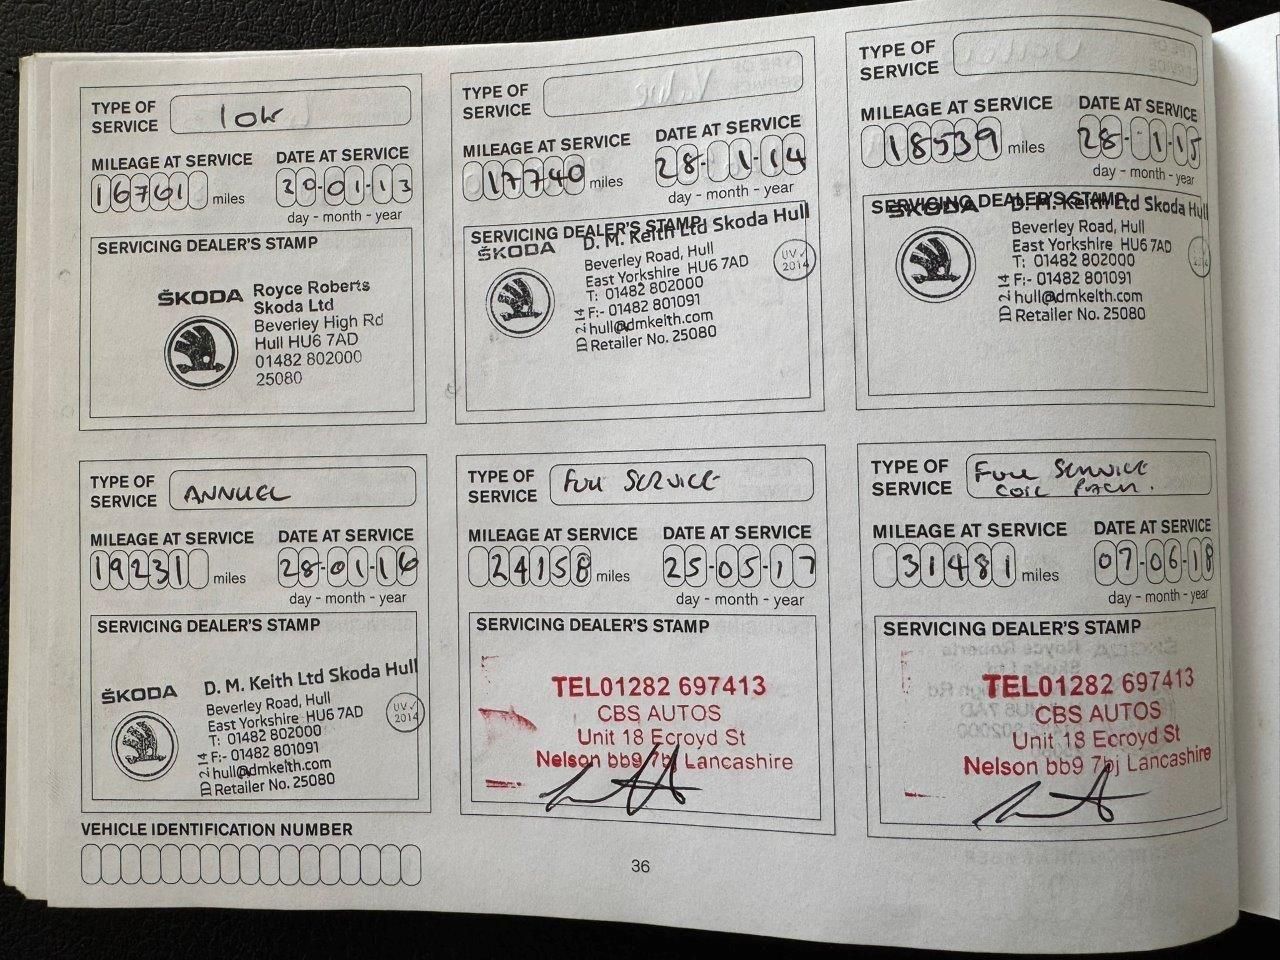 TYPE OF SERVICE
10K
MILEAGE AT SERVICE
16761 miles
DATE AT SERVICE
30-01-13
day - month - year
SERVICING DEALER'S STAMP
ŠKODA
Royce Roberts
Skoda Ltd
Beverley High Rd
Hull HU6 7AD
01482 802000
25080
TYPE OF SERVICE
MILEAGE AT SERVICE
17740 miles
DATE AT SERVICE
28-1-14
day - month - year
SERVICING DEALER'S STAMP
ŠKODA
D. M. Keith Ltd Skoda Hull
Beverley Road, Hull
East Yorkshire HU6 7AD
T: 01482 802000
F:- 01482 801091
hull@dmkeith.com
Retailer No. 25080
ID 2.14
UV✓
2014
TYPE OF SERVICE
MILEAGE AT SERVICE
18539 miles
DATE AT SERVICE
28-1-15
day - month - year
SERVICING DEALER'S STAMP
ŠKODA
D. M. Keith Ltd Skoda Hull
Beverley Road, Hull
East Yorkshire HU6 7AD
T: 01482 802000
F:- 01482 801091
hull@dmkeith.com
Retailer No. 25080
ID 2.14
TYPE OF SERVICE
ANNUEL
MILEAGE AT SERVICE
19231 miles
DATE AT SERVICE
28-01-16
day - month - year
SERVICING DEALER'S STAMP
ŠKODA
D. M. Keith Ltd Skoda Hull
Beverley Road, Hull
East Yorkshire HU6 7AD
T: 01482 802000
F:- 01482 801091
hull@dmkeith.com
Retailer No. 25080
ID 2.14
UV✓
2014
TYPE OF SERVICE
FULL SERVICE
MILEAGE AT SERVICE
24158 miles
DATE AT SERVICE
25-05-17
day - month - year
SERVICING DEALER'S STAMP
TEL01282 697413
CBS AUTOS
Unit 18 Ecroyd St
Nelson bb9 7bj Lancashire
TYPE OF SERVICE
FULL SERVICE
COIL PACK.
MILEAGE AT SERVICE
31481 miles
DATE AT SERVICE
07-06-18
day - month - year
SERVICING DEALER'S STAMP
TEL01282 697413
CBS AUTOS
Unit 18 Ecroyd St
Nelson bb9 7bj Lancashire
VEHICLE IDENTIFICATION NUMBER
36